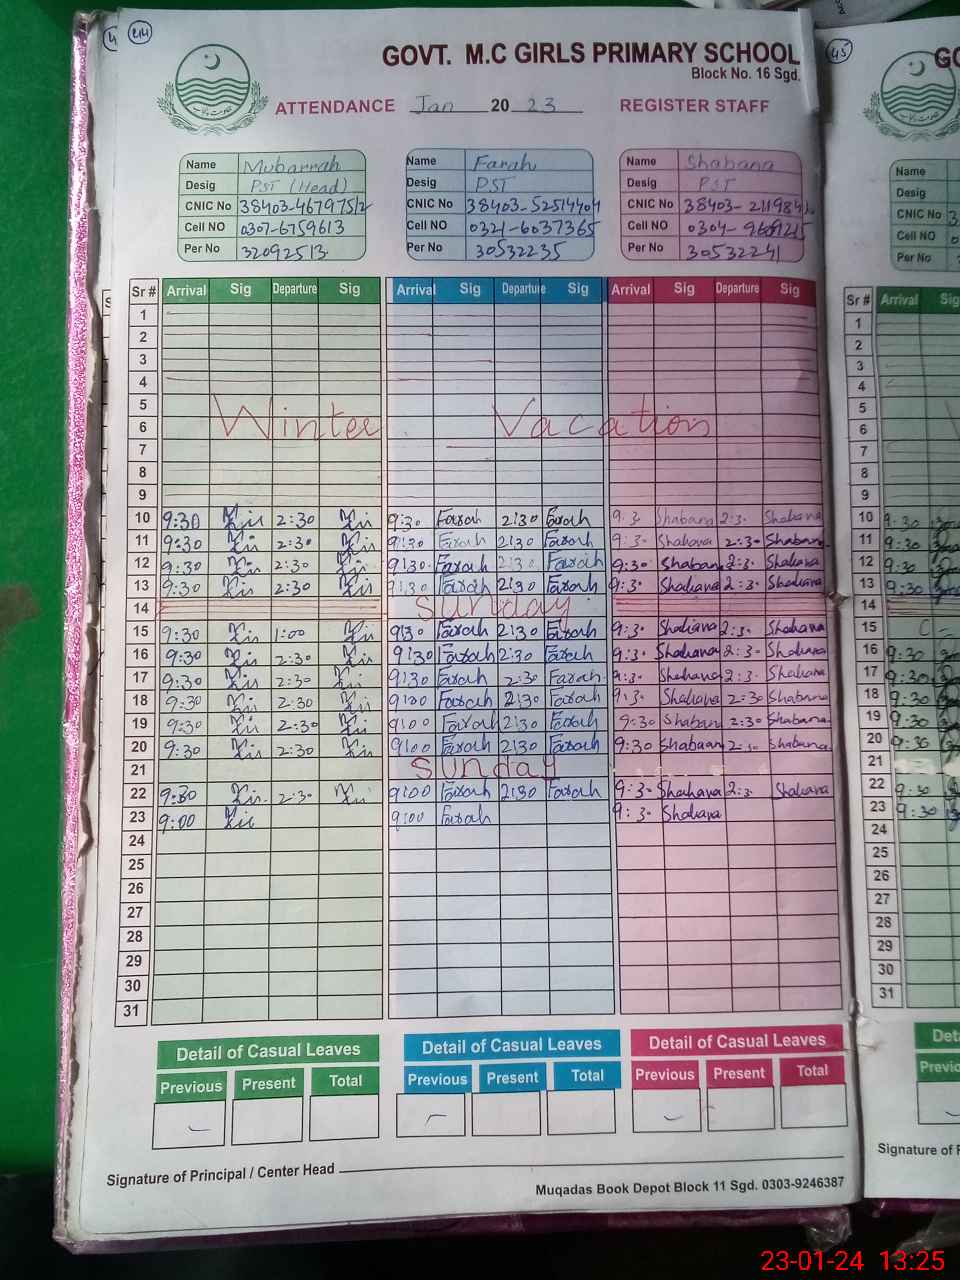 44
GOVT. M.C GIRLS PRIMARY SCHOOL
Block No. 16 Sgd.
ATTENDANCE Jan 20 23 REGISTER STAFF
Name Mubarrah Name Farah Name Shabana
Desig PST (Head) Desig PST Desig PST
CNIC No CNIC No 38403-52514404 CNIC No
Cell NO 0307-6759613 Cell NO 0321-6037365 Cell NO 0304-
Per No 32092513 Per No 30532235 Per No 30532241
Sr # Arrival Sig Departure Sig Arrival Sig Departure Sig Arrival Sig Departure Sig
1
2
3
4
5
6 Winter Vacation
7
8
9
10 9:30 2:30 9:30 Farah 2:30 Farah 9:3 Shabana 2:3 Shabana
11 9:30 2:30 9:30 Farah 2:30 Farah 9:3 Shabana 2:30 Shabana
12 9:30 2:30 9:30 Farah 2:30 Farah 9:30 Shabana 2:3 Shabana
13 9:30 2:30 9:30 Farah 2:30 Farah 9:3 Shabana 2:3 Shabana
14 Sunday
15 9:30 1:00 9:30 Farah 2:30 Farah 9:3 Shabana 2:3 Shabana
16 9:30 2:30 9:30 Farah 2:30 Farah 9:3 Shabana 2:3 Shabana
17 9:30 2:30 9:30 Farah 2:30 Farah 9:3 Shabana 2:3 Shabana
18 9:30 2:30 9:00 Farah 2:30 Farah 9:3 Shabana 2:30 Shabana
19 9:30 2:30 9:00 Farah 2:30 Farah 9:30 Shaban 2:30 Shabana
20 9:30 2:30 9:00 Farah 2:30 Farah 9:30 Shabaan 2:30 Shabana
21 Sunday
22 9:30 2:30 9:00 Farah 2:30 Farah 9:3 Shabana 2:3 Shabana
23 9:00 9:00 Farah 9:3 Shabana
24
25
26
27
28
29
30
31
Detail of Casual Leaves Detail of Casual Leaves Detail of Casual Leaves
Previous Present Total Previous Present Total Previous Present Total
Signature of Principal / Center Head
Muqadas Book Depot Block 11 Sgd. 0303-9246387
45
GO
Name
Desig
CNIC No
Cell NO
Per No
Sr # Arrival Sig
1
2
3
4
5
6
7
8
9
10 9:30
11 9:30
12 9:30
13 9:30
14
15
16 9:30
17 9:30
18 9:30
19 9:30
20 9:30
21
22 9:30
23 9:30
24
25
26
27
28
29
30
31
Deta
Previo
Signature of P
23-01-24 13:25